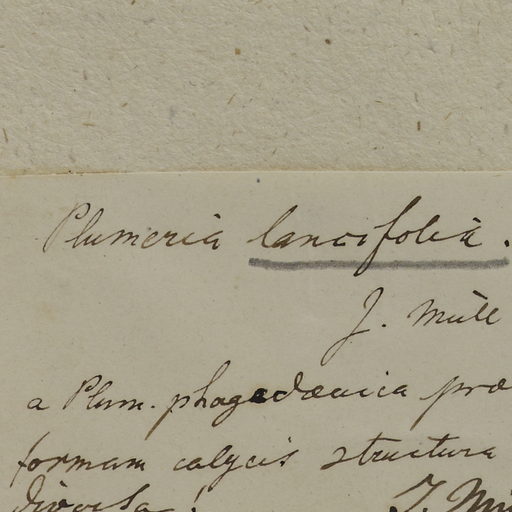 Plumeria lancifolia.
J. Müll
a Plum. phagedaenica prae
formam calycis structura
diversa!
J. Mü